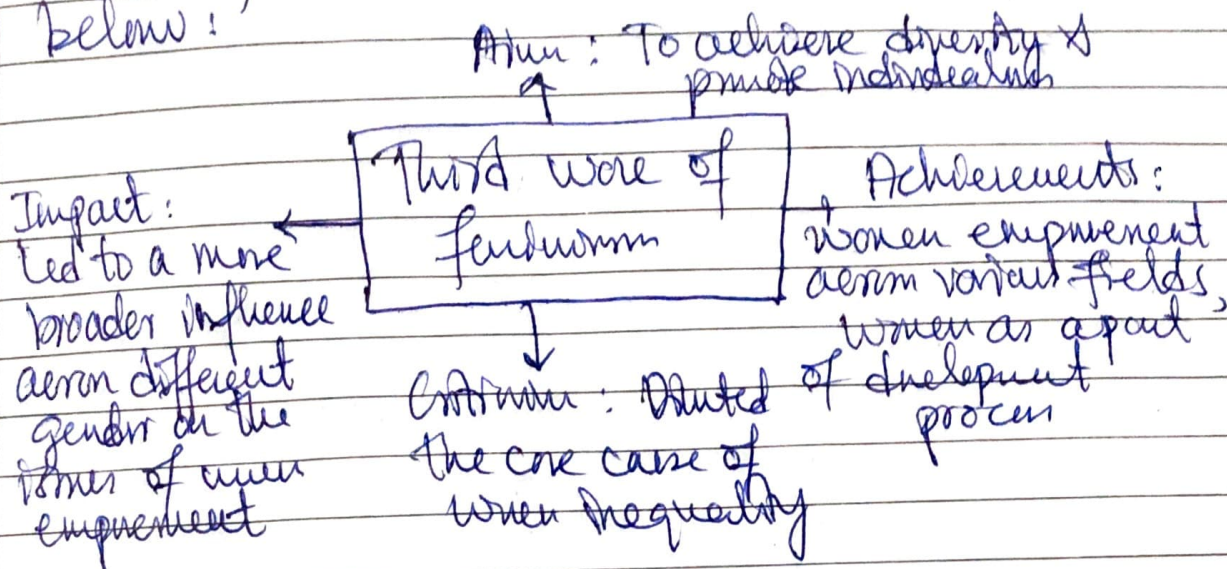 below:
Aim: To achieve diversity &
promote individualism
Third wave of
feminism
Impact:
Led to a more
broader influence
across different
gender on the
issues of women
empowerment
Achievements:
women empowerment
across various fields,
women as a part
of development
process
Criticism: Diluted
the core cause of
women inequality